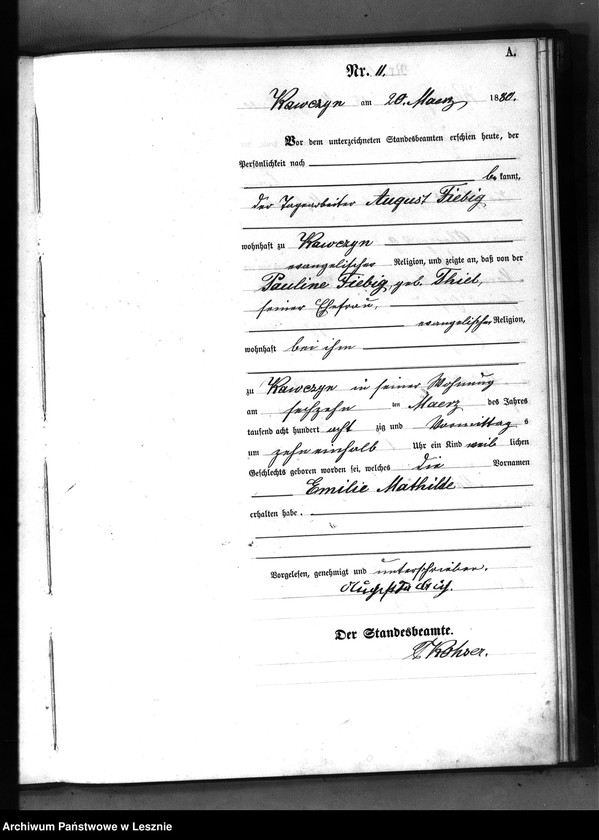 A.
Nr. 11.
Kawczyn am 20. Maerz 1880.
Vor dem unterzeichneten Standesbeamten erschien heute, der
Persönlichkeit nach
be kannt,
der Tagearbeiter August Fiebig
wohnhaft zu Kawczyn
evangelischer Religion, und zeigte an, daß von der
Pauline Fiebig, geb. Thiel,
seiner Ehefrau,
evangelischer Religion,
wohnhaft bei ihm
zu Kawczyn in seiner Wohnung
am sechzehn ten Maerz des Jahres
tausend acht hundert acht zig und Vormittag s
um zehn einhalb Uhr ein Kind weib lichen
Geschlechts geboren worden sei, welches die Vornamen
Emilie Mathilde
erhalten habe.
Vorgelesen, genehmigt und unterschrieben.
Der Standesbeamte.
Archiwum Państwowe w Lesznie